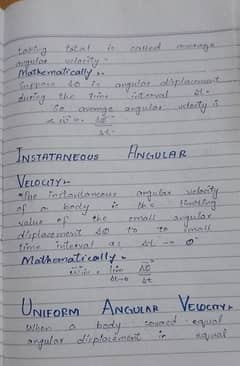 taking total is called average
angular velocity.
Mathematically:-
Suppose Δθ is angular displacement
during the time interval Δt.
So average angular velocity is
<ω> = Δθ
Δt.
INSTATANEOUS ANGULAR
VELOCITY:-
"The instantaneous angular velocity
of a body is the limiting
value of the small angular
displacement Δθ to to small
time interval as Δt → 0"
Mathematically:-
lim Δθ
Δt→0 Δt
UNIFORM ANGULAR VELOCITY:-
When a body equal
angular displacement in equal